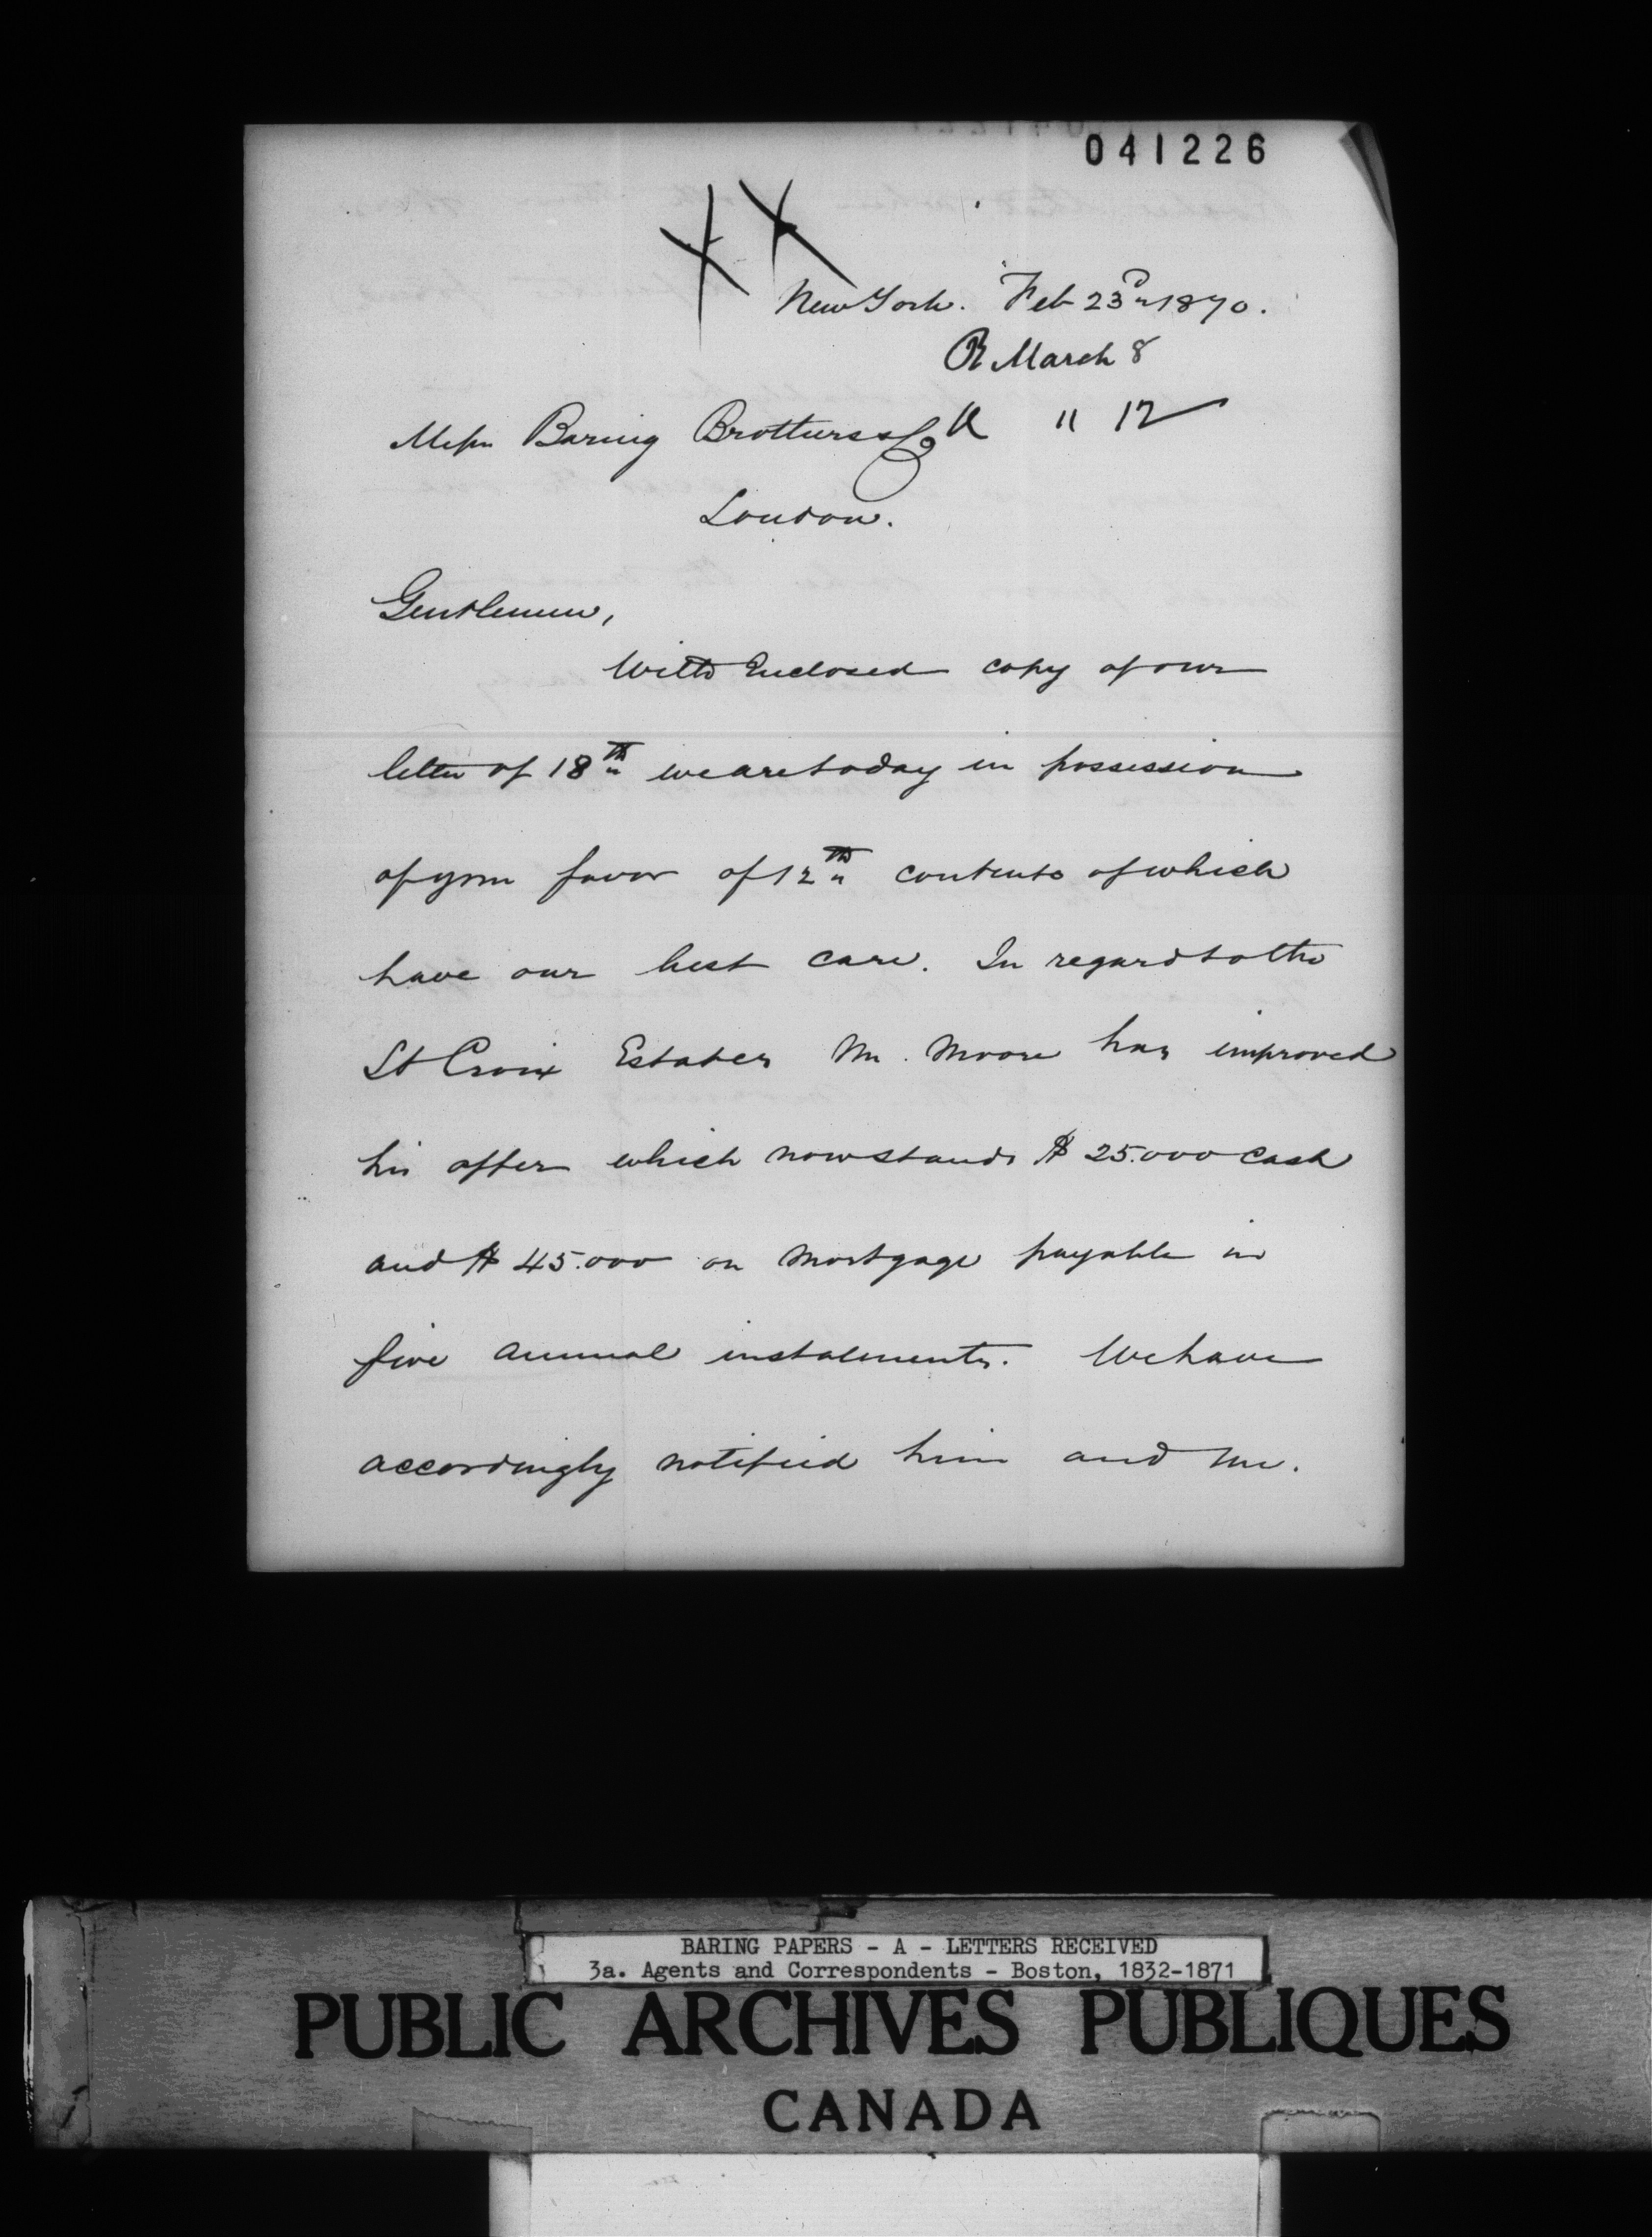 041226
New York. Feb 23rd 1870.
R March 8
Messrs Baring Brothers & Co A " 12
London.
Gentlemen,
With Enclosed copy of our
letter of 18th we are today in possession
of your favor of 12th contents of which
have our best care. In regard to the
St Croix Estates Mr. Moore has improved
his offer which now stands $ 25.000 cash
and $ 45.000 on mortgage payable in
five annual instalments. We have
accordingly notified him and Mr.
BARING PAPERS - A - LETTERS RECEIVED
3a. Agents and Correspondents - Boston, 1832-1871
PUBLIC ARCHIVES PUBLIQUES
CANADA